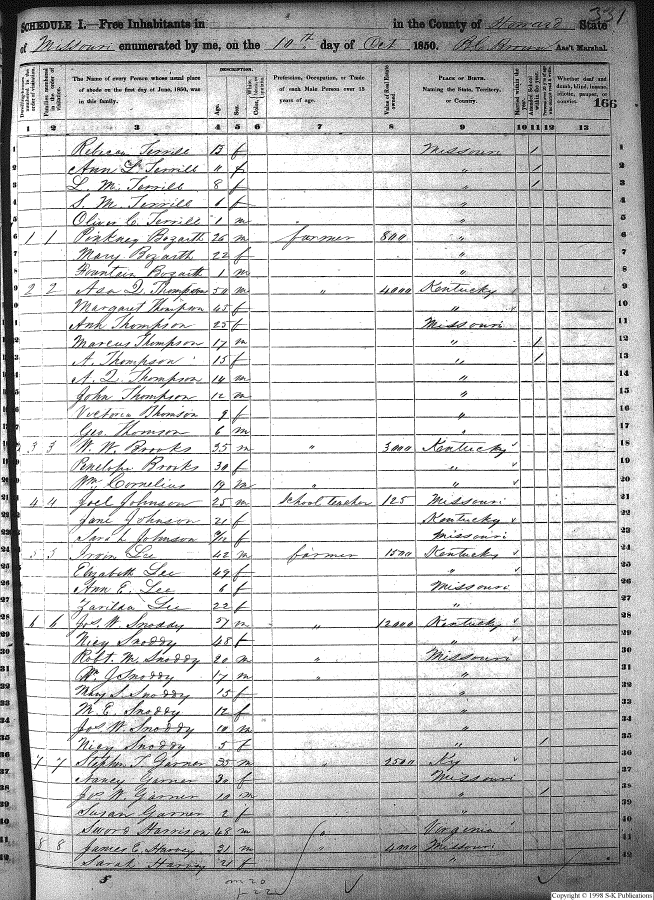 331
SCHEDULE I.—Free Inhabitants in in the County of Howard State
of Missouri enumerated by me, on the 10th day of Oct 1850. Ass't Marshal.
Dwelling-houses numbered in the order of visitation.
Families numbered in the order of visitation.
The Name of every Person whose usual place of abode on the first day of June, 1850, was in this family.
DESCRIPTION.
Age.
Sex.
Color,
Profession, Occupation, or Trade of each Male Person over 15 years of age.
Value of Real Estate owned.
PLACE OF BIRTH. Naming the State, Territory, or Country.
Married within the year.
Attended School within the year.
Whether deaf and dumb, blind, insane, idiotic, pauper, or convict.
166
1 2 3 4 5 6 7 8 9 10 11 12 13
1 Rebecca Terrill 13 f Missouri 1 1
2 Ann L Terrill 11 f " 1 2
3 L. M. Terrill 8 f " 1 3
4 S. M. Terrill 6 f " 4
5 Oliver C. Terrill 1 m " 5
6 1 1 Pinkney Bozarth 26 m farmer 800 " 6
7 Mary Bozarth 22 f " 7
8 Fountain Bozarth 1 m " 8
9 2 2 Asa Q. Thompson 50 m " 4000 Kentucky 9
10 Margaret Thompson 45 f " 10
11 Ann Thompson 25 f Missouri 11
12 Marcus Thompson 17 m " 1 12
13 A. Thompson 15 f " 1 13
14 A. Q. Thompson 14 m " 14
15 John Thompson 12 m " 15
16 Victoria Thomson 9 f " 16
17 Geo. Thomson 6 m " 17
18 3 3 W. W. Brooks 35 m " 3000 Kentucky 18
19 Penelope Brooks 30 f " 19
20 Wm Cornelius 19 m " " 20
21 4 4 Joel Johnson 25 m School teacher 125 Missouri 21
22 Jane Johnson 21 f Kentucky 22
23 Sarah Johnson f Missouri 23
24 5 5 Irvin Lee 42 m farmer 1500 Kentucky 24
25 Elizabeth Lee 49 f " 25
26 Ann E. Lee 6 f Missouri 26
27 Zarilda Lee 22 f " 27
28 6 6 Jos W. Snoddy 57 m " 12000 Kentucky 28
29 Nicy Snoddy 48 f " 29
30 Robt. M. Snoddy 20 m " Missouri 30
31 Wm J Snoddy 17 m " " 31
32 Mary S. Snoddy 15 f " 32
33 M. E. Snoddy 12 f " 33
34 Jos W. Snoddy 10 m " 34
35 Nicy Snoddy 5 f " 1 35
36 7 7 Stephen T. Garner 35 m " 2500 Ky 36
37 Nancy Garner 30 f Missouri 37
38 Jos W. Garner 10 m " 1 38
39 Susan Garner 2 f " 39
40 Sword Harrison 48 m " Virginia 40
41 8 8 James E. Harvey 21 m " 400 Missouri 41
42 Sarah Harvey 21 f " 42
5
m 20
f 22
Copyright © 1998 S-K Publications